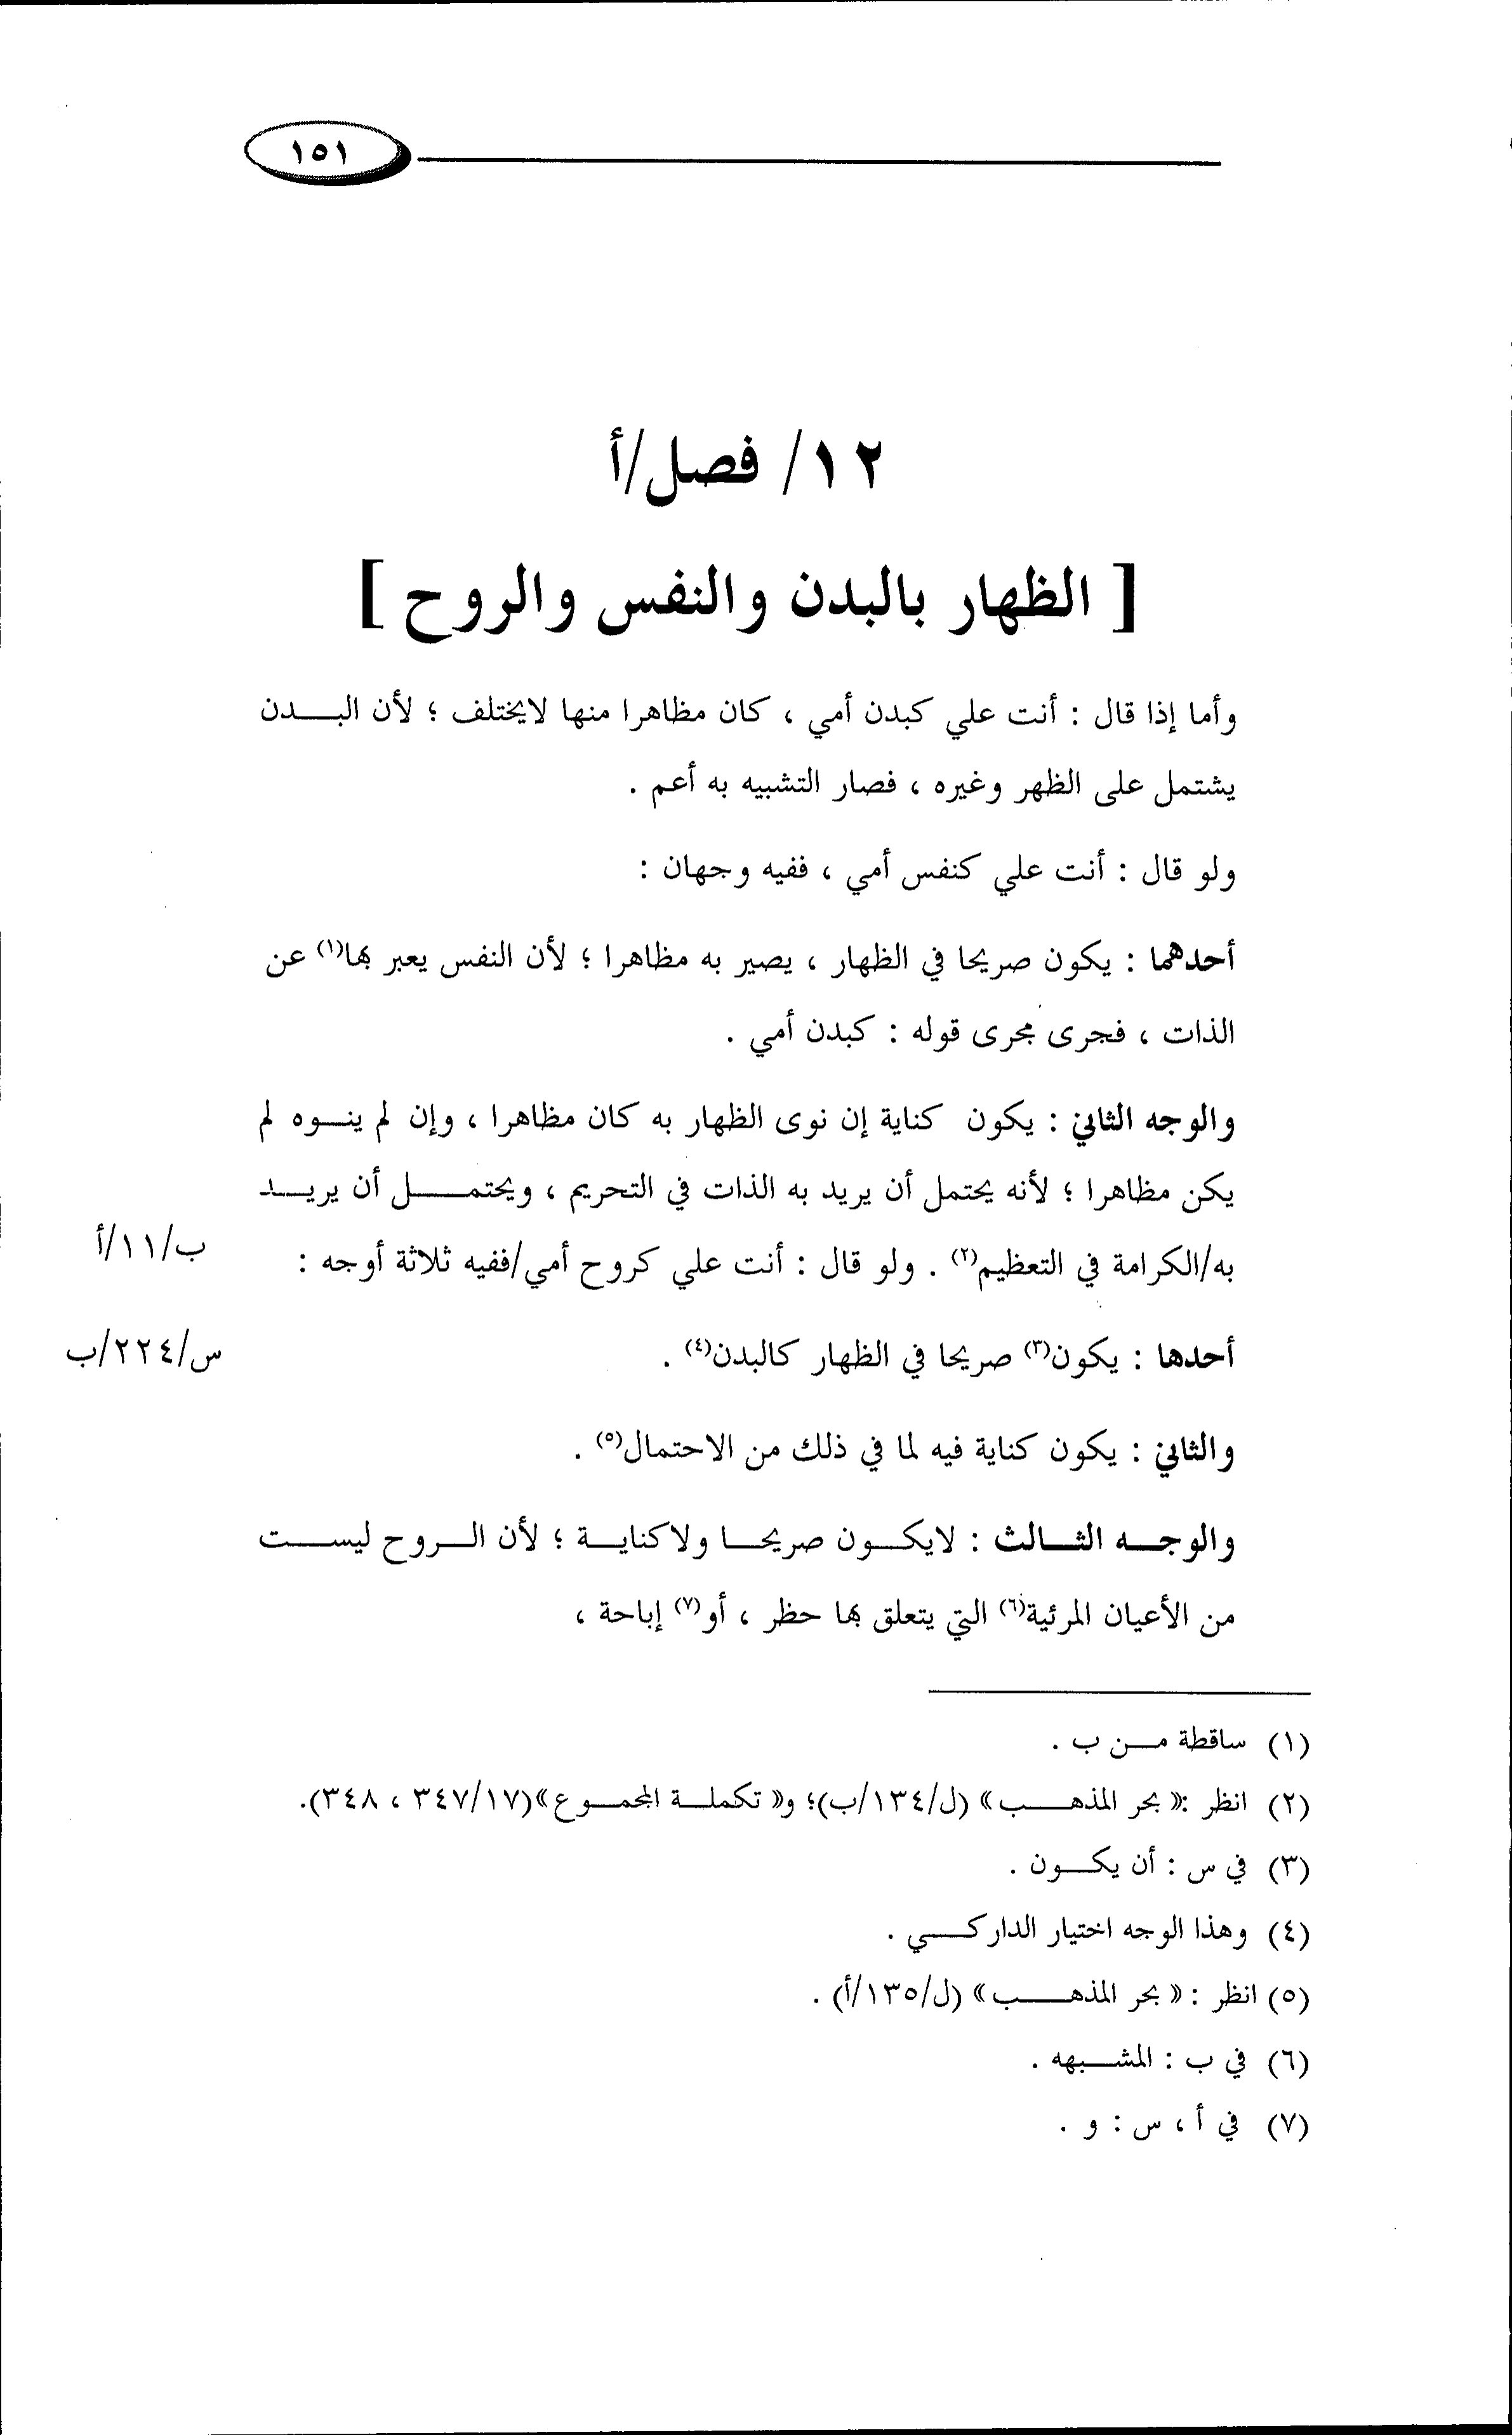 ١٥١
١٢/ فصل/أ
[ الظهار بالبدن والنفس والروح ]
وأما إذا قال : أنت علي كبدن أمي ، كان مظاهرا منها لايختلف ؛ لأن البـــدن
يشتمل على الظهر وغيره ، فصار التشبيه به أعم .
ولو قال : أنت علي كنفس أمي ، ففيه وجهان :
أحدهما : يكون صريحا في الظهار ، يصير به مظاهرا ؛ لأن النفس يعبر بها(١) عن
الذات ، فجرى مجرى قوله : كبدن أمي .
والوجه الثاني : يكون كناية إن نوى الظهار به كان مظاهرا ، وإن لم ينـــوه لم
يكن مظاهرا ؛ لأنه يحتمل أن يريد به الذات في التحريم ، ويحتمـــــل أن يريـــد
به/الكرامة في التعظيم(٢) . ولو قال : أنت علي كروح أمي/ففيه ثلاثة أوجه :
ب/١١/أ
أحدها : يكون(٣) صريحا في الظهار كالبدن(٤) .
س/٢٢٤/ب
والثاني : يكون كناية فيه لما في ذلك من الاحتمال(٥) .
والوجـــه الثـــالث : لايكـــون صريحـــا ولاكنايـــة ؛ لأن الـــروح ليســـت
من الأعيان المرئية(٦) التي يتعلق بها حظر ، أو(٧) إباحة ،
(١) ساقطة مـــن ب .
(٢) انظر :« بحر المذهـــــب » (ل/١٣٤/ب)؛ و« تكملـــة المجمـــوع »(٣٤٧/١٧ ، ٣٤٨).
(٣) في س : أن يكـــون .
(٤) وهذا الوجه اختيار الداركـــــي .
(٥) انظر : « بحر المذهـــــب » (ل/١٣٥/أ) .
(٦) في ب : المشـــبهه .
(٧) في أ ، س : و .